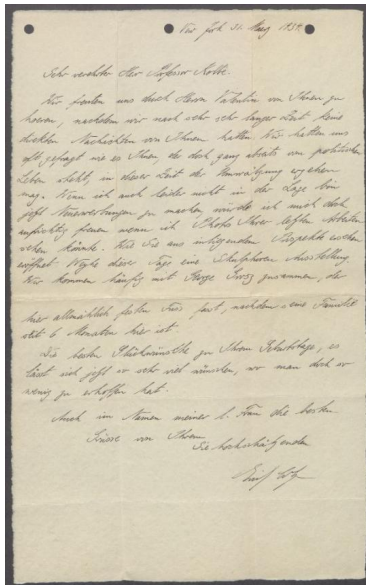 New York 31. März 1934.
Sehr verehrter Herr Professor Nolde.
Wir freuten uns durch Herrn Valentin von Ihnen zu
hoeren, nachdem wir nach sehr sehr langer Zeit keine
direkten Nachrichten von Ihnen hatten. Wir hatten uns
oft gefragt wie es Ihnen, der doch ganz abseits vom politischen
Leben steht, in dieser Zeit der Umwälzung ergehen
mag. Wenn ich auch leider nicht in der Lage bin
jetzt Neuerwerbungen zu machen würde ich mich doch
aufrichtig freuen wenn ich Photos Ihrer letzten Arbeiten
sehen könnte. Wie Sie aus Prospekte sehen
eröffnet diese Tage eine Ausstellung
Wir kommen häufig mit George Grosz zusammen, der
hier allmählich festen Fuss fasst, nachdem seine Familie
seit 6 Monaten hier ist.
Die besten Glückwünsche zu Ihrem Geburtstage, es
lässt sich jetzt so sehr viel wünschen, wo man doch so
wenig zu erhoffen hat.
Auch im Namen meiner l. Frau die besten
Grüsse von Ihrem
Sie hochschätzenden